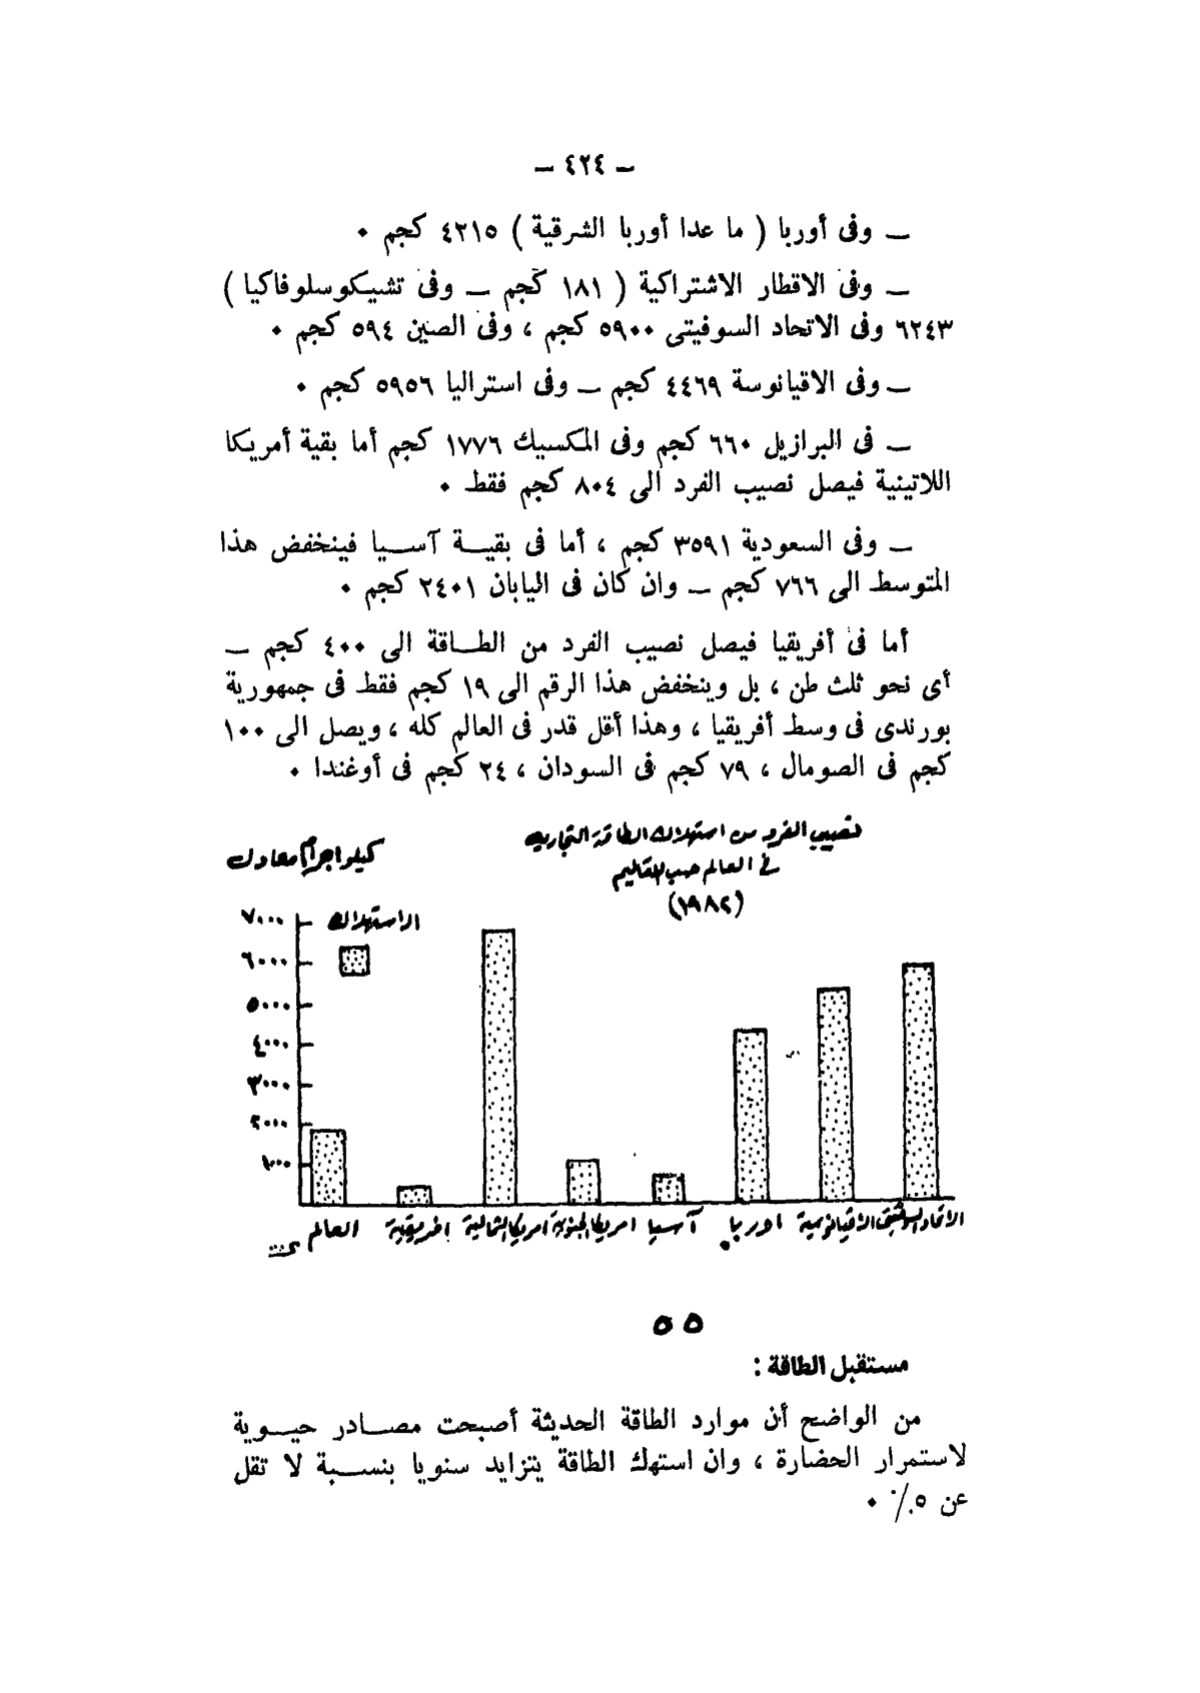 — ٤٢٤ —
— وفى أوربا ( ما عدا أوربا الشرقية ) ٤٢١٥ كجم ٠
— وفى الاقطار الاشتراكية ( ١٨١ كجم — وفى تشيكوسلوفاكيا )
٦٢٤٣ وفى الاتحاد السوفيتى ٥٩٠٠ كجم ، وفى الصين ٥٩٤ كجم ٠
— وفى الاقيانوسة ٤٤٦٩ كجم — وفى استراليا ٥٩٥٦ كجم ٠
— فى البرازيل ٦٦٠ كجم وفى المكسيك ١٧٧٦ كجم أما بقية أمريكا
اللاتينية فيصل نصيب الفرد الى ٨٠٤ كجم فقط ٠
— وفى السعودية ٣٥٩١ كجم ، أما فى بقيـــة آســـيا فينخفض هذا
المتوسط الى ٧٦٦ كجم — وان كان فى اليابان ٢٤٠١ كجم ٠
أما فى أفريقيا فيصل نصيب الفرد من الطـــاقة الى ٤٠٠ كجم —
أى نحو ثلث طن ، بل وينخفض هذا الرقم الى ١٩ كجم فقط فى جمهورية
بورندى فى وسط أفريقيا ، وهذا أقل قدر فى العالم كله ، ويصل الى ١٠٠
كجم فى الصومال ، ٧٩ كجم فى السودان ، ٢٤ كجم فى أوغندا ٠
نصيب الفرد من استهلاك الطاقة التجارية
فى العالم حسب الأقاليم
(١٩٨٢)
كيلو اجرام معادل
الاستهلاك
٧٠٠٠
٦٠٠٠
٥٠٠٠
٤٠٠٠
٣٠٠٠
٢٠٠٠
١٠٠٠
الاتحاد السوفيتى الاقيانوسية اوربا آسيا امريكا الجنوبية امريكا الشمالية افريقية العالم
٥٥
مستقبل الطاقة :
من الواضح أن موارد الطاقة الحديثة أصبحت مصـــادر حيـــوية
لاستمرار الحضارة ، وان استهلك الطاقة يتزايد سنويا بنســـبة لا تقل
عن ٥٪ ٠